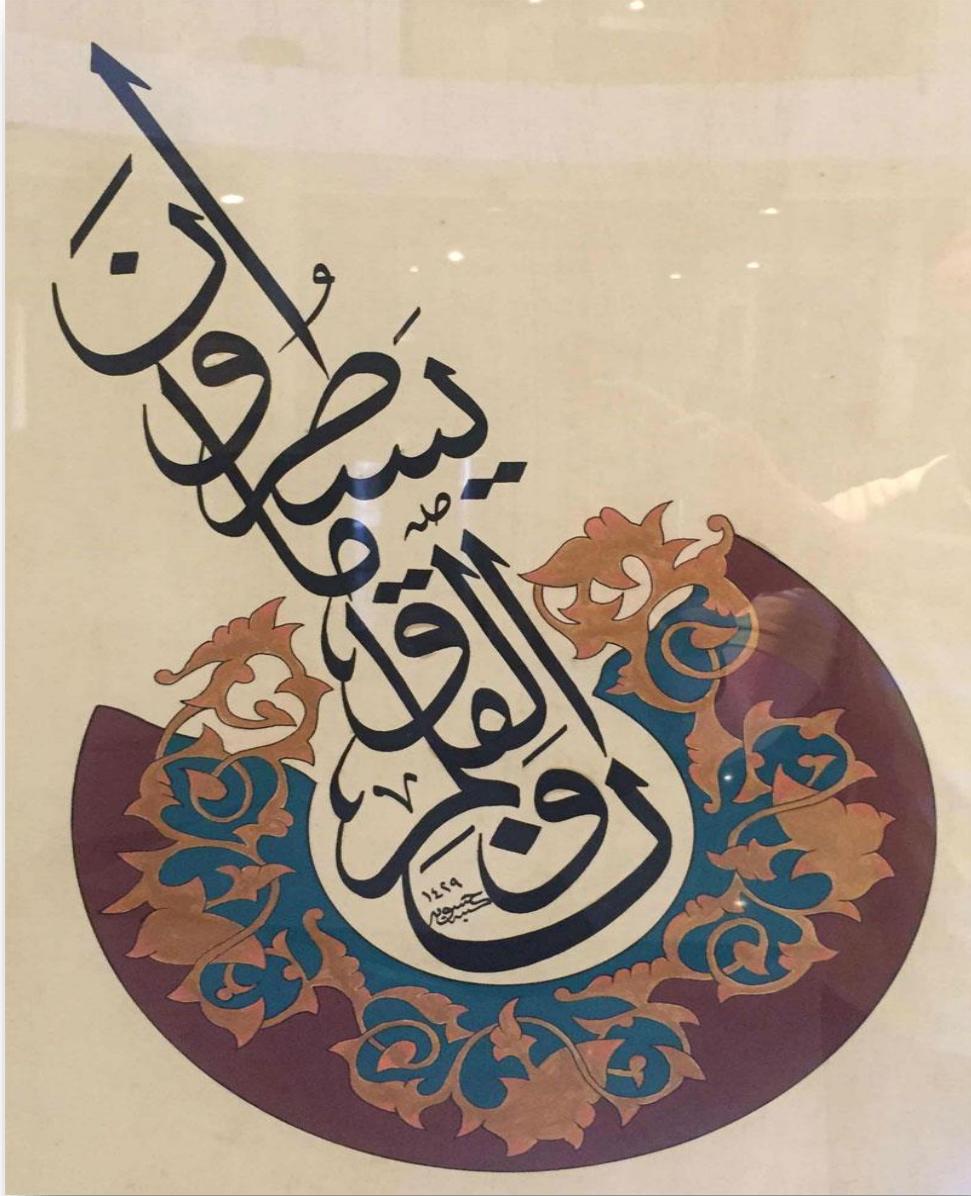 ن والقلم وما يسطرون
١٤٢٩